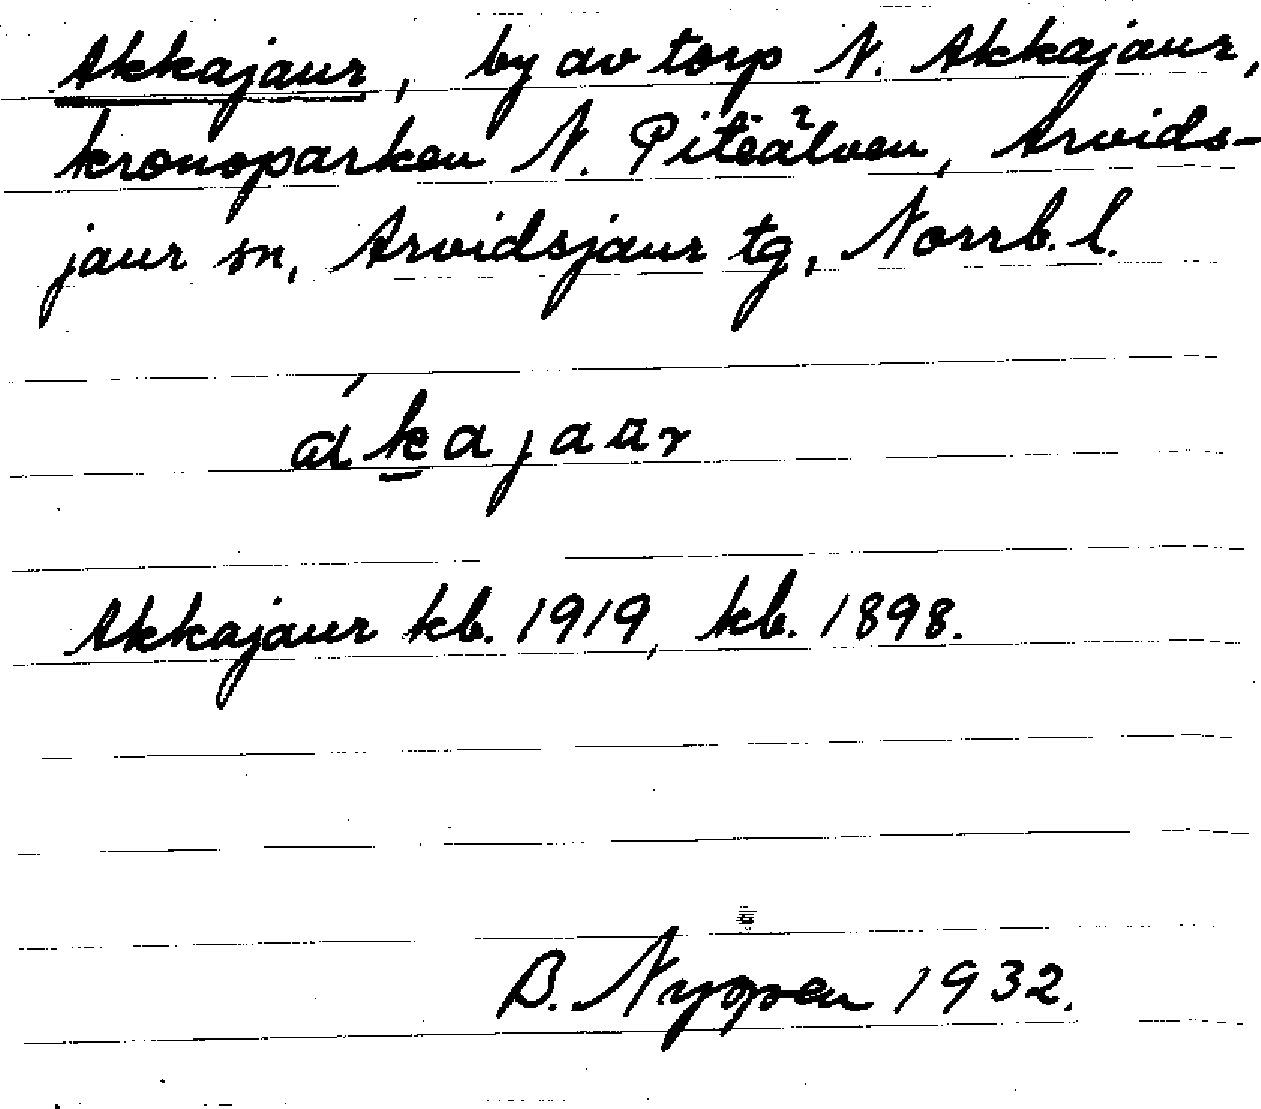 Akkajaur, by av torp N. Akkajaur,
kronoparken N. Piteälven, Arvids-
jaur sn, Arvidsjaur tg, Norrb. l.
ákajaur
Akkajaur kb. 1919, kb. 1898.
B. Nygren 1932.